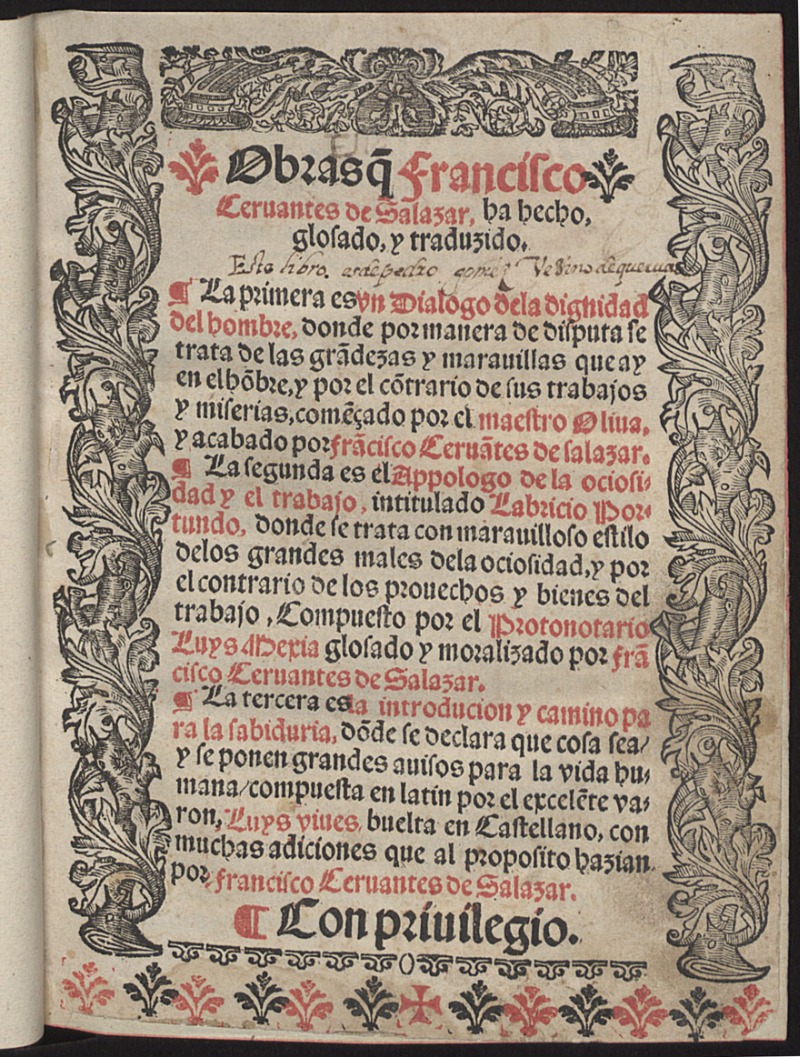 Obras q̃ Francisco
Ceruantes de Salazar, ha hecho,
glosado, y traduzido.
Este libro es de pedro gomez
¶ La primera es vn Dialogo dela dignidad
del hombre, donde por manera de disputa se
trata de las grãdezas y marauillas que ay
en el hõbre, y por el cõtrario de sus trabajos
y miserias, comẽçado por el maestro Oliua,
y acabado por frãcisco Ceruãtes de salazar.
¶ La segunda es el Appologo de la ociosi-
dad y el trabajo, intitulado Labricio Por-
tundo, donde se trata con marauilloso estilo
delos grandes males dela ociosidad, y por
el contrario de los prouechos y bienes del
trabajo, Compuesto por el Protonotario
Luys Mexia glosado y moralizado por frã
cisco Ceruantes de Salazar.
¶ La tercera es la introducion y camino pa
ra la sabiduria, dõde se declara que cosa sea/
y se ponen grandes auisos para la vida hu-
mana/compuesta en latin por el excelẽte va-
ron, Luys viues, buelta en Castellano, con
muchas adiciones que al proposito hazian
por francisco Ceruantes de Salazar.
¶ Con priuilegio.